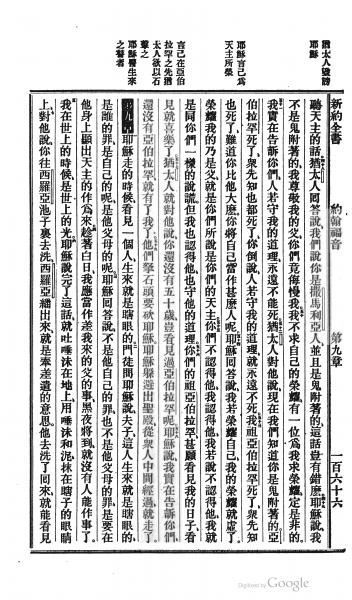 新約全書　約翰福音　第九章　一百六十六
猶太人毀謗
耶穌
耶穌言己爲
天主所榮
言己在亞伯
拉罕之先猶
太人欲以石
擊之
耶穌醫生來
之瞽者
聽天主的話猶太人回答說我們說你是撒馬利亞人並且是鬼附著的這話豈有錯麽耶穌說我
不是鬼附著的我尊敬我的父你們竟侮慢我我不求自己的榮耀有一位爲我求榮耀定是非的
我實在告訴你們人若守我的道理永遠不能死猶太人對他說現在我們知道你是鬼附著的亞
伯拉罕死了衆先知也都死了你倒說人若守我的道理就永遠不死我祖亞伯拉罕死了衆先知
也死了難道你比他大麽你將自己當作甚麽人呢耶穌回答說我若榮耀自己我的榮耀就虛了
榮耀我的乃是父就是你們所說是你們的天主你們不認得他我認得他我若說不認得他我就
是同你們一樣的說謊但我也認得他也守他的道理你們的祖亞伯拉罕甚願看見我的日子看
見就喜樂了猶太人就對他說你還沒有五十歲豈看見過亞伯拉罕呢耶穌說我實在告訴你們
還沒有亞伯拉罕就有了我了他們拏石頭要砍耶穌耶穌躲避出聖殿從衆人中間經過就走了
第九章耶穌走的時候看見一個人生來就是瞎眼的門徒問耶穌說夫子這人生來就是瞎眼的
是誰的罪是自己的呢是他父母的呢耶穌回答說不是他自己的罪也不是他父母的罪是要在
他身上顯出天主的作爲來趁著白日我應當作差我來的父的事黑夜將到就沒有人能作事了
我在世上的時候是世上的光耶穌說完了這話就吐唾沫在地上用唾沫和泥抹在瞎子的眼睛
上對他說你往西羅亞池子裏去洗西羅亞繙出來就是奉差遣的意思他去洗了回來就能看見
Digitized by Google